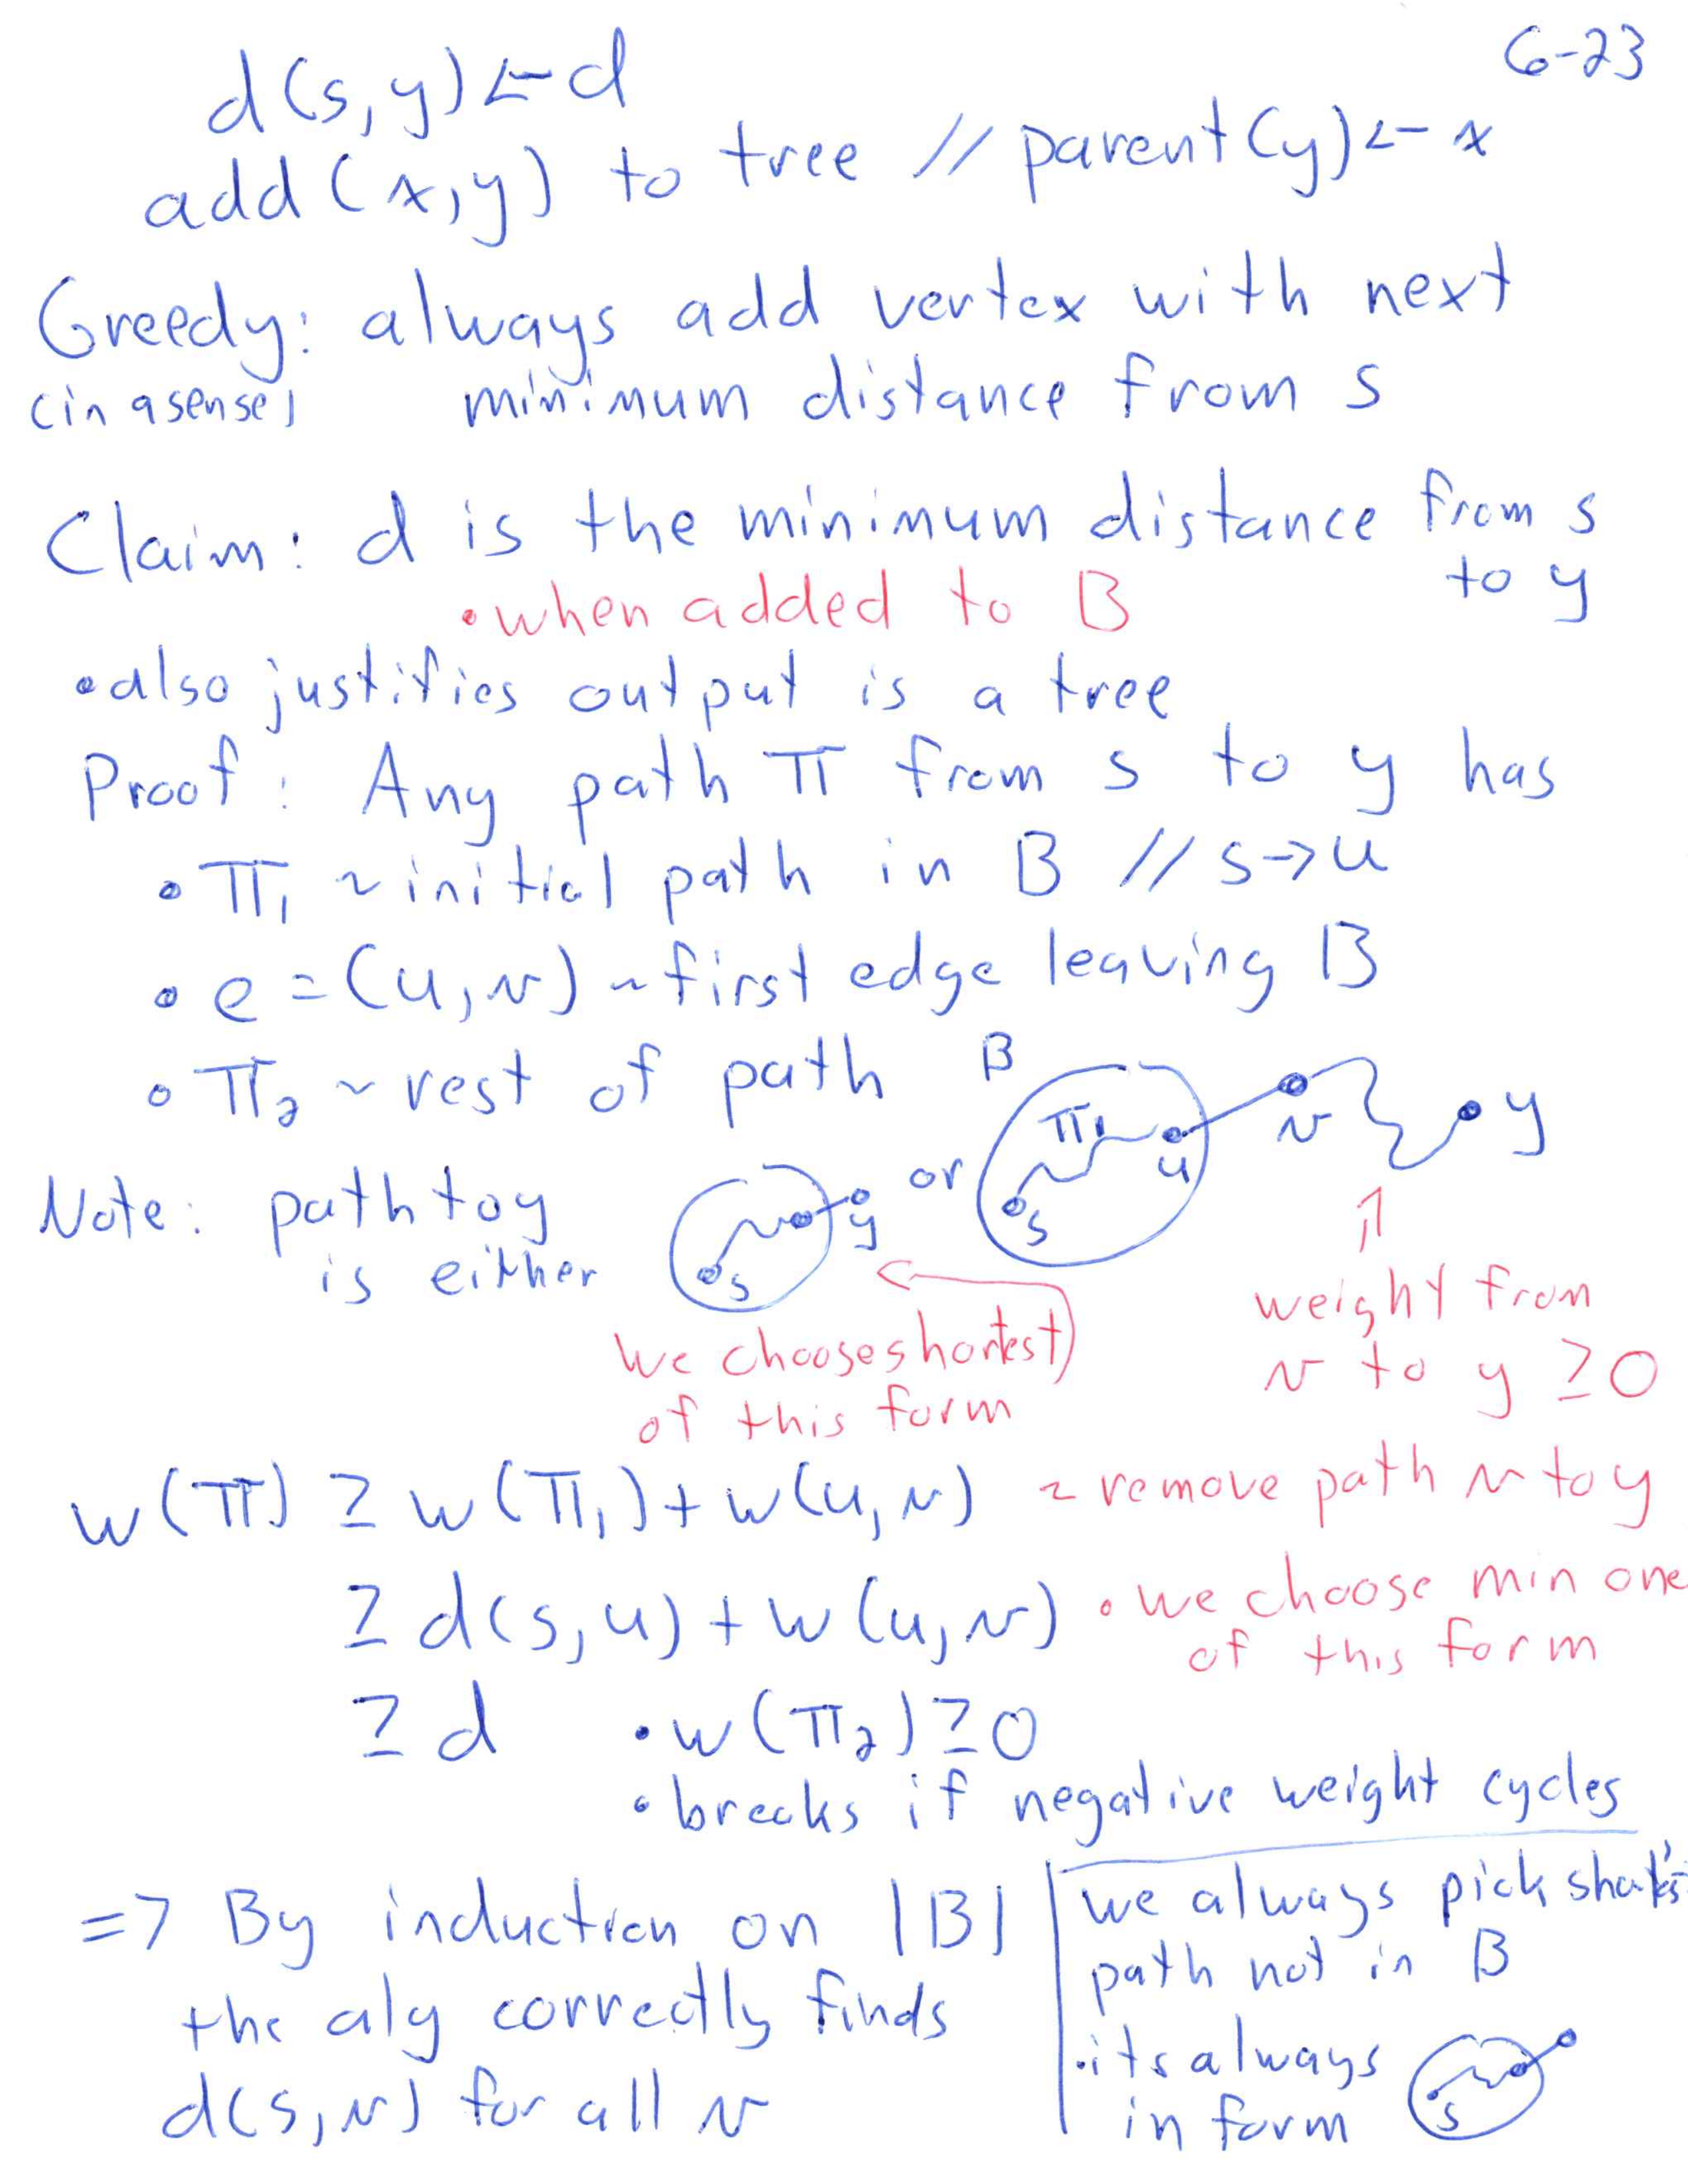 6-23
d(s,y) ← d
add (x,y) to tree // parent(y) ← x
Greedy: always add vertex with next
(in a sense) minimum distance from s
Claim: d is the minimum distance from s
to y
• when added to B
• also justifies output is a tree
Proof: Any path π from s to y has
• π₁ ~ initial path in B // s→u
• e = (u,v) ~ first edge leaving B
• π₂ ~ rest of path
B
π₁ u s v y
Note: path to y
is either
s y or
we choose shortest
of this form
weight from
v to y ≥ 0
w(π) ≥ w(π₁) + w(u,v) ~ remove path v to y
≥ d(s,u) + w(u,v) • we choose min one
of this form
≥ d • w(π₂) ≥ 0
• breaks if negative weight cycles
=> By induction on |B|
the alg correctly finds
d(s,v) for all v
we always pick
path not in B
• its always
in form
s